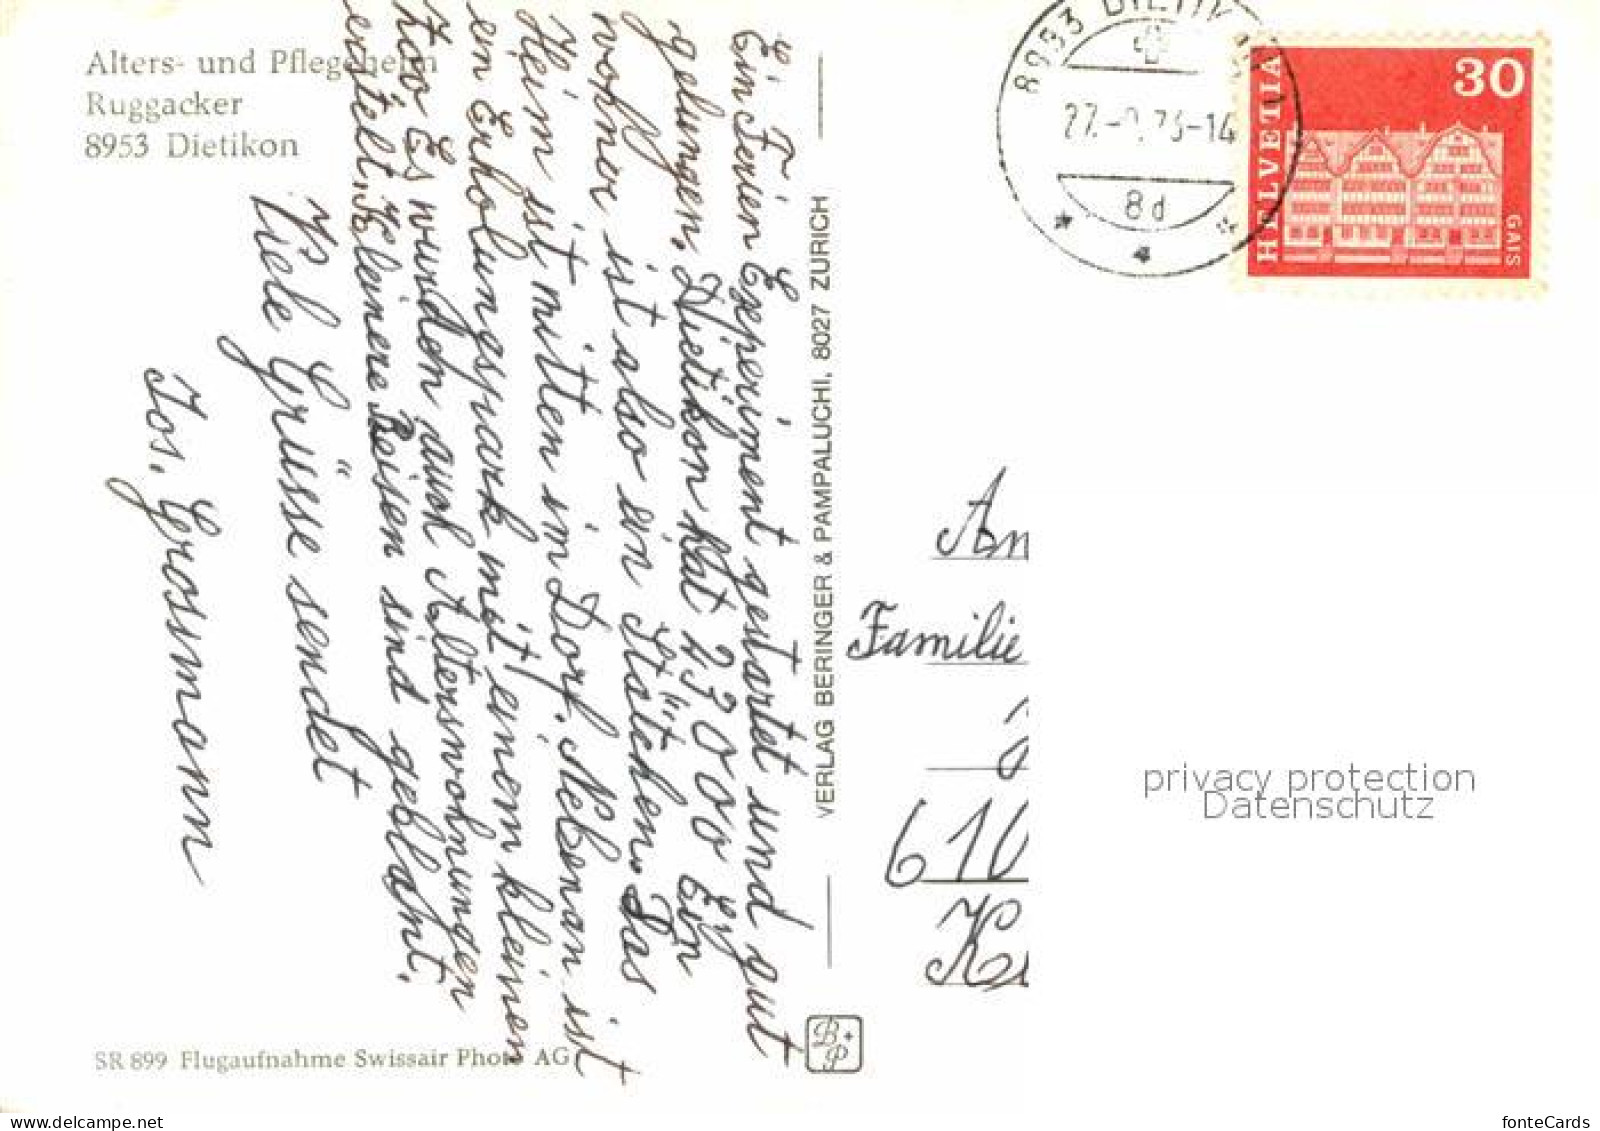 Alters- und Pflegeheim
Ruggacker
8953 Dietikon
Ein Ferien Experiment gestartet und gut
gelungen. Dietikon hat 23000 Ein
wohner ist also ein Städchen. Das
Heim ist mitten im Dorf. Nebenan ist
ein Erholungspark mit einem kleinen
Zoo Es wurden auch Alterswohnungen
erstellt. Kleinere Reisen sind geplant.
Viele Grüsse sendet
Jos. Grossmann
SR 899 Flugaufnahme Swissair Photo AG
VERLAG BERINGER & PAMPALUCHI, 8027 ZURICH
B+P
8953 DIETIKON
-14
8d
HELVETIA
30
GAIS
An
Familie
610
privacy protection
Datenschutz
Akpool.de
fonteCards